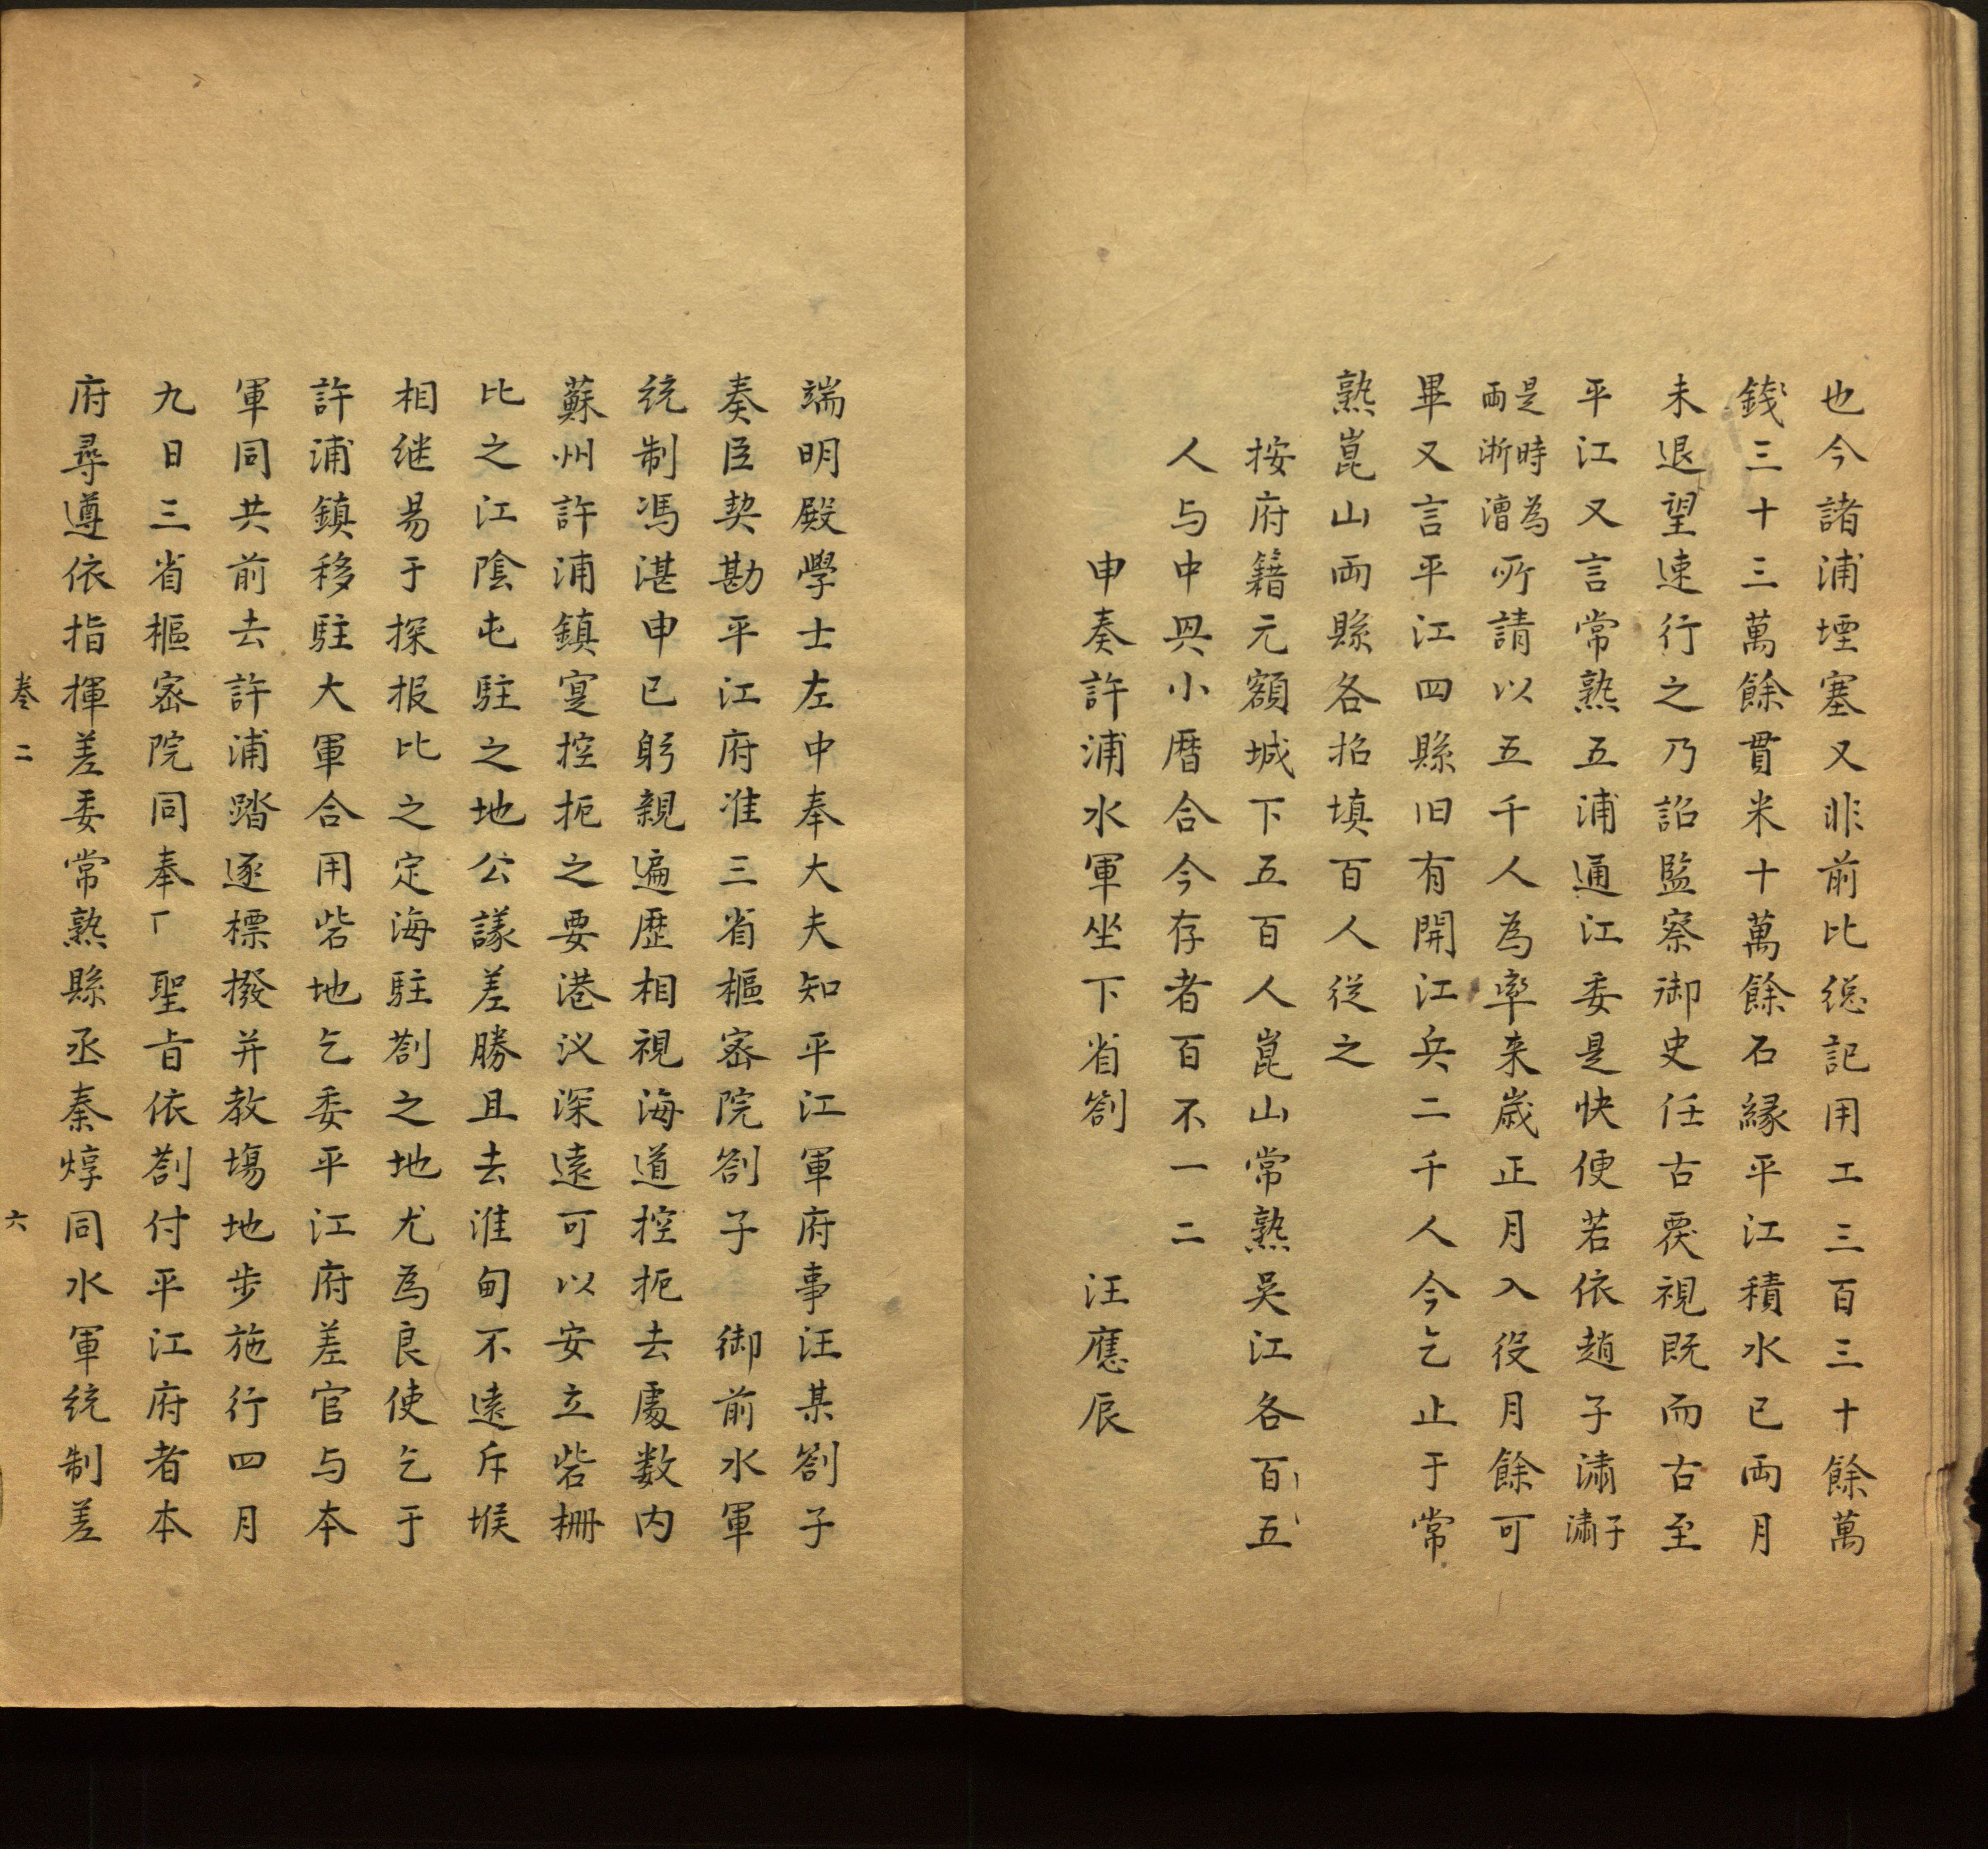 也今諸浦堙塞又非前比総記用工三百三十餘萬
錢三十三萬餘貫米十萬餘石縁平江積水已両月
未退望速行之乃詔監察御史任古覆視既而古至
平江又言常熟五浦通江委是快便若依趙子潚子潚
是時為両浙漕所請以五千人為率来歲正月入役月餘可
畢又言平江四縣旧有開江兵二千人今乞止于常
熟崑山両縣各招填百人従之
按府籍元額城下五百人崑山常熟吳江各百五
人与中興小曆合今存者百不一二
申奏許浦水軍坐下省劄 汪應辰
端明殿學士左中奉大夫知平江軍府事汪某劄子
奏臣契勘平江府准三省樞宻院劄子 御前水軍
統制馮湛申已躬親遍歷相視海道控扼去處数内
蘇州許浦鎮寔控扼之要港汊深遠可以安立砦栅
比之江陰屯駐之地公議差勝且去淮甸不遠斥堠
相継易于探报比之定海駐劄之地尤為良使乞于
許浦鎮移駐大軍合用砦地乞委平江府差官与本
軍同共前去許浦踏逐標撥并教場地步施行四月
九日三省樞宻院同奉 聖旨依劄付平江府者本
府尋遵依指揮差委常熟縣丞秦焞同水軍統制差
卷二 六